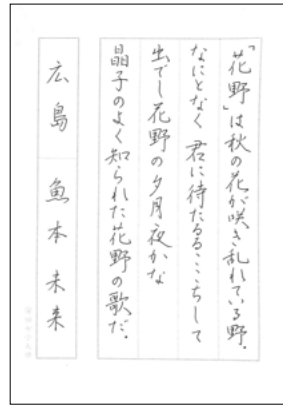 「花野」は秋の花が咲き乱れている野.
なにとなく君に待たるるここちして
出でし花野の夕月夜かな
晶子のよく知られた花野の歌だ.
広島 魚本未来